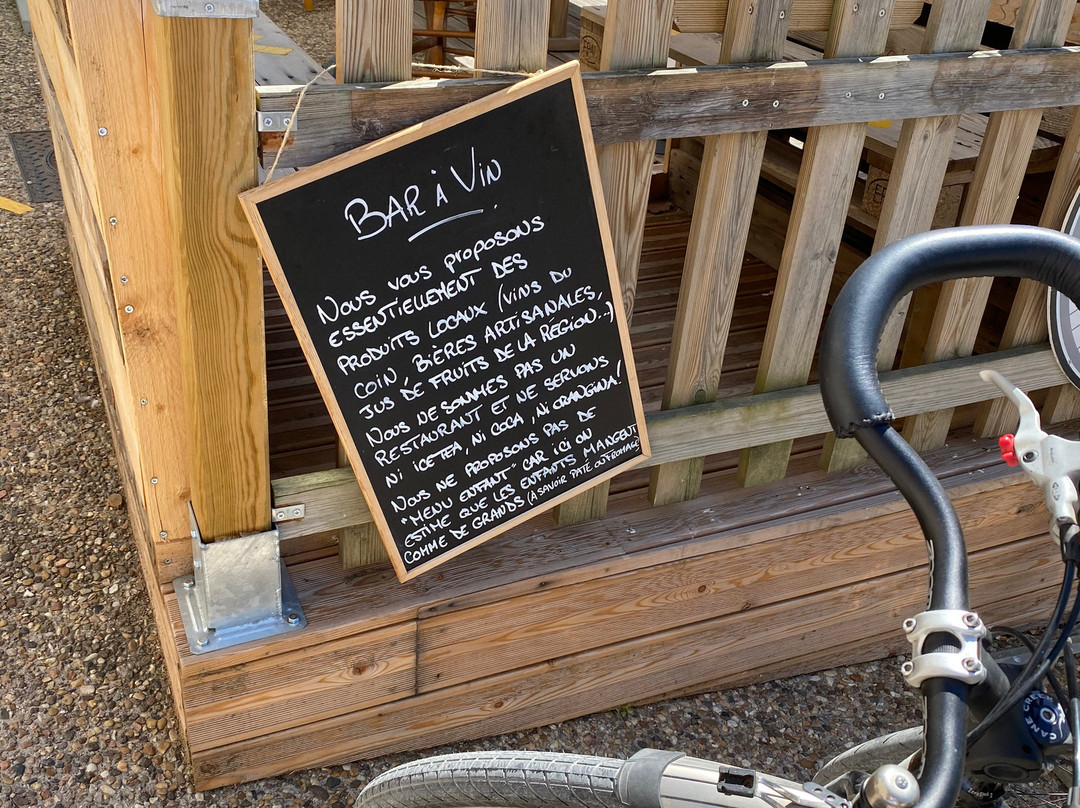 BAR À VIN
NOUS VOUS PROPOSONS
ESSENTIELLEMENT DES
PRODUITS LOCAUX (VINS DU
COIN, BIÈRES ARTISANALES,
JUS DE FRUITS DE LA RÉGION...)
NOUS NE SOMMES PAS UN
RESTAURANT ET NE SERVONS
NI ICETEA, NI COCA, NI ORANGINA!
NOUS NE PROPOSONS PAS DE
"MENU ENFANT" CAR ICI ON
ESTIME QUE LES ENFANTS MANGENT
COMME DE GRANDS (À SAVOIR PATÉ OU FROMAGE)
CANE CREEK